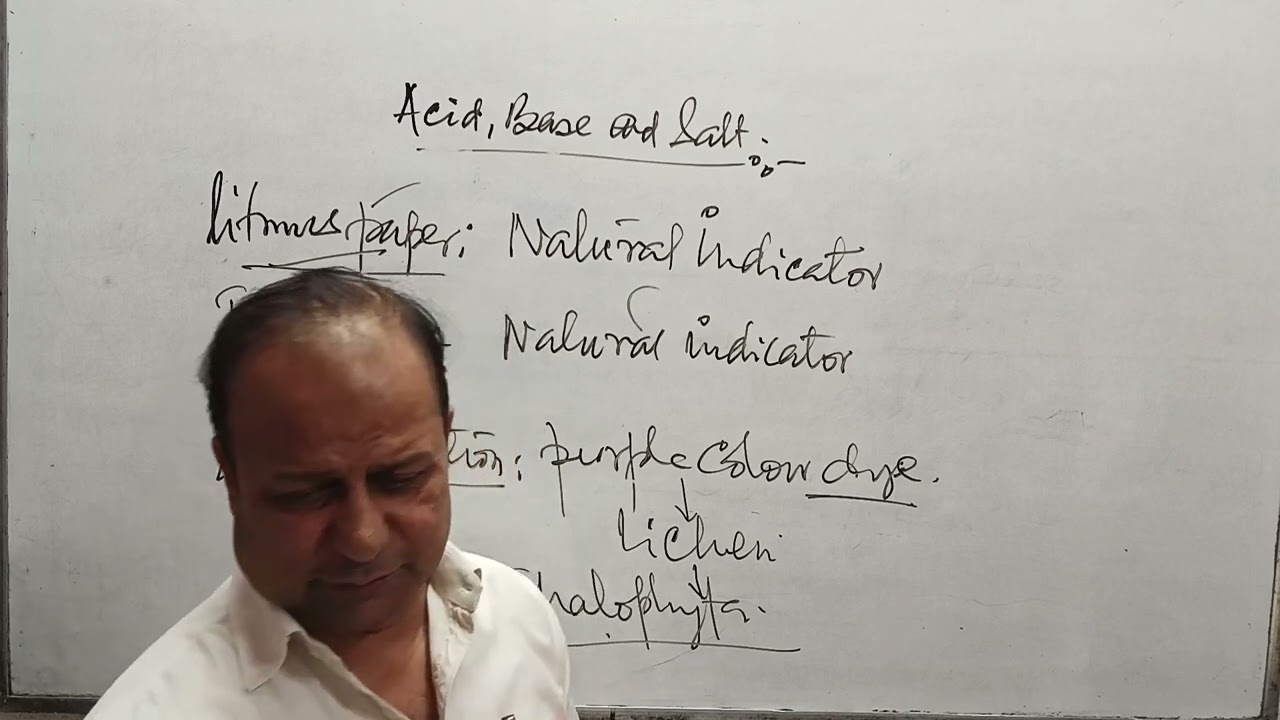 Acid, Base and Salt :-
litmus paper: Natural indicator
Natural indicator
tion: purple colour dye.
lichen
Thalophyta.